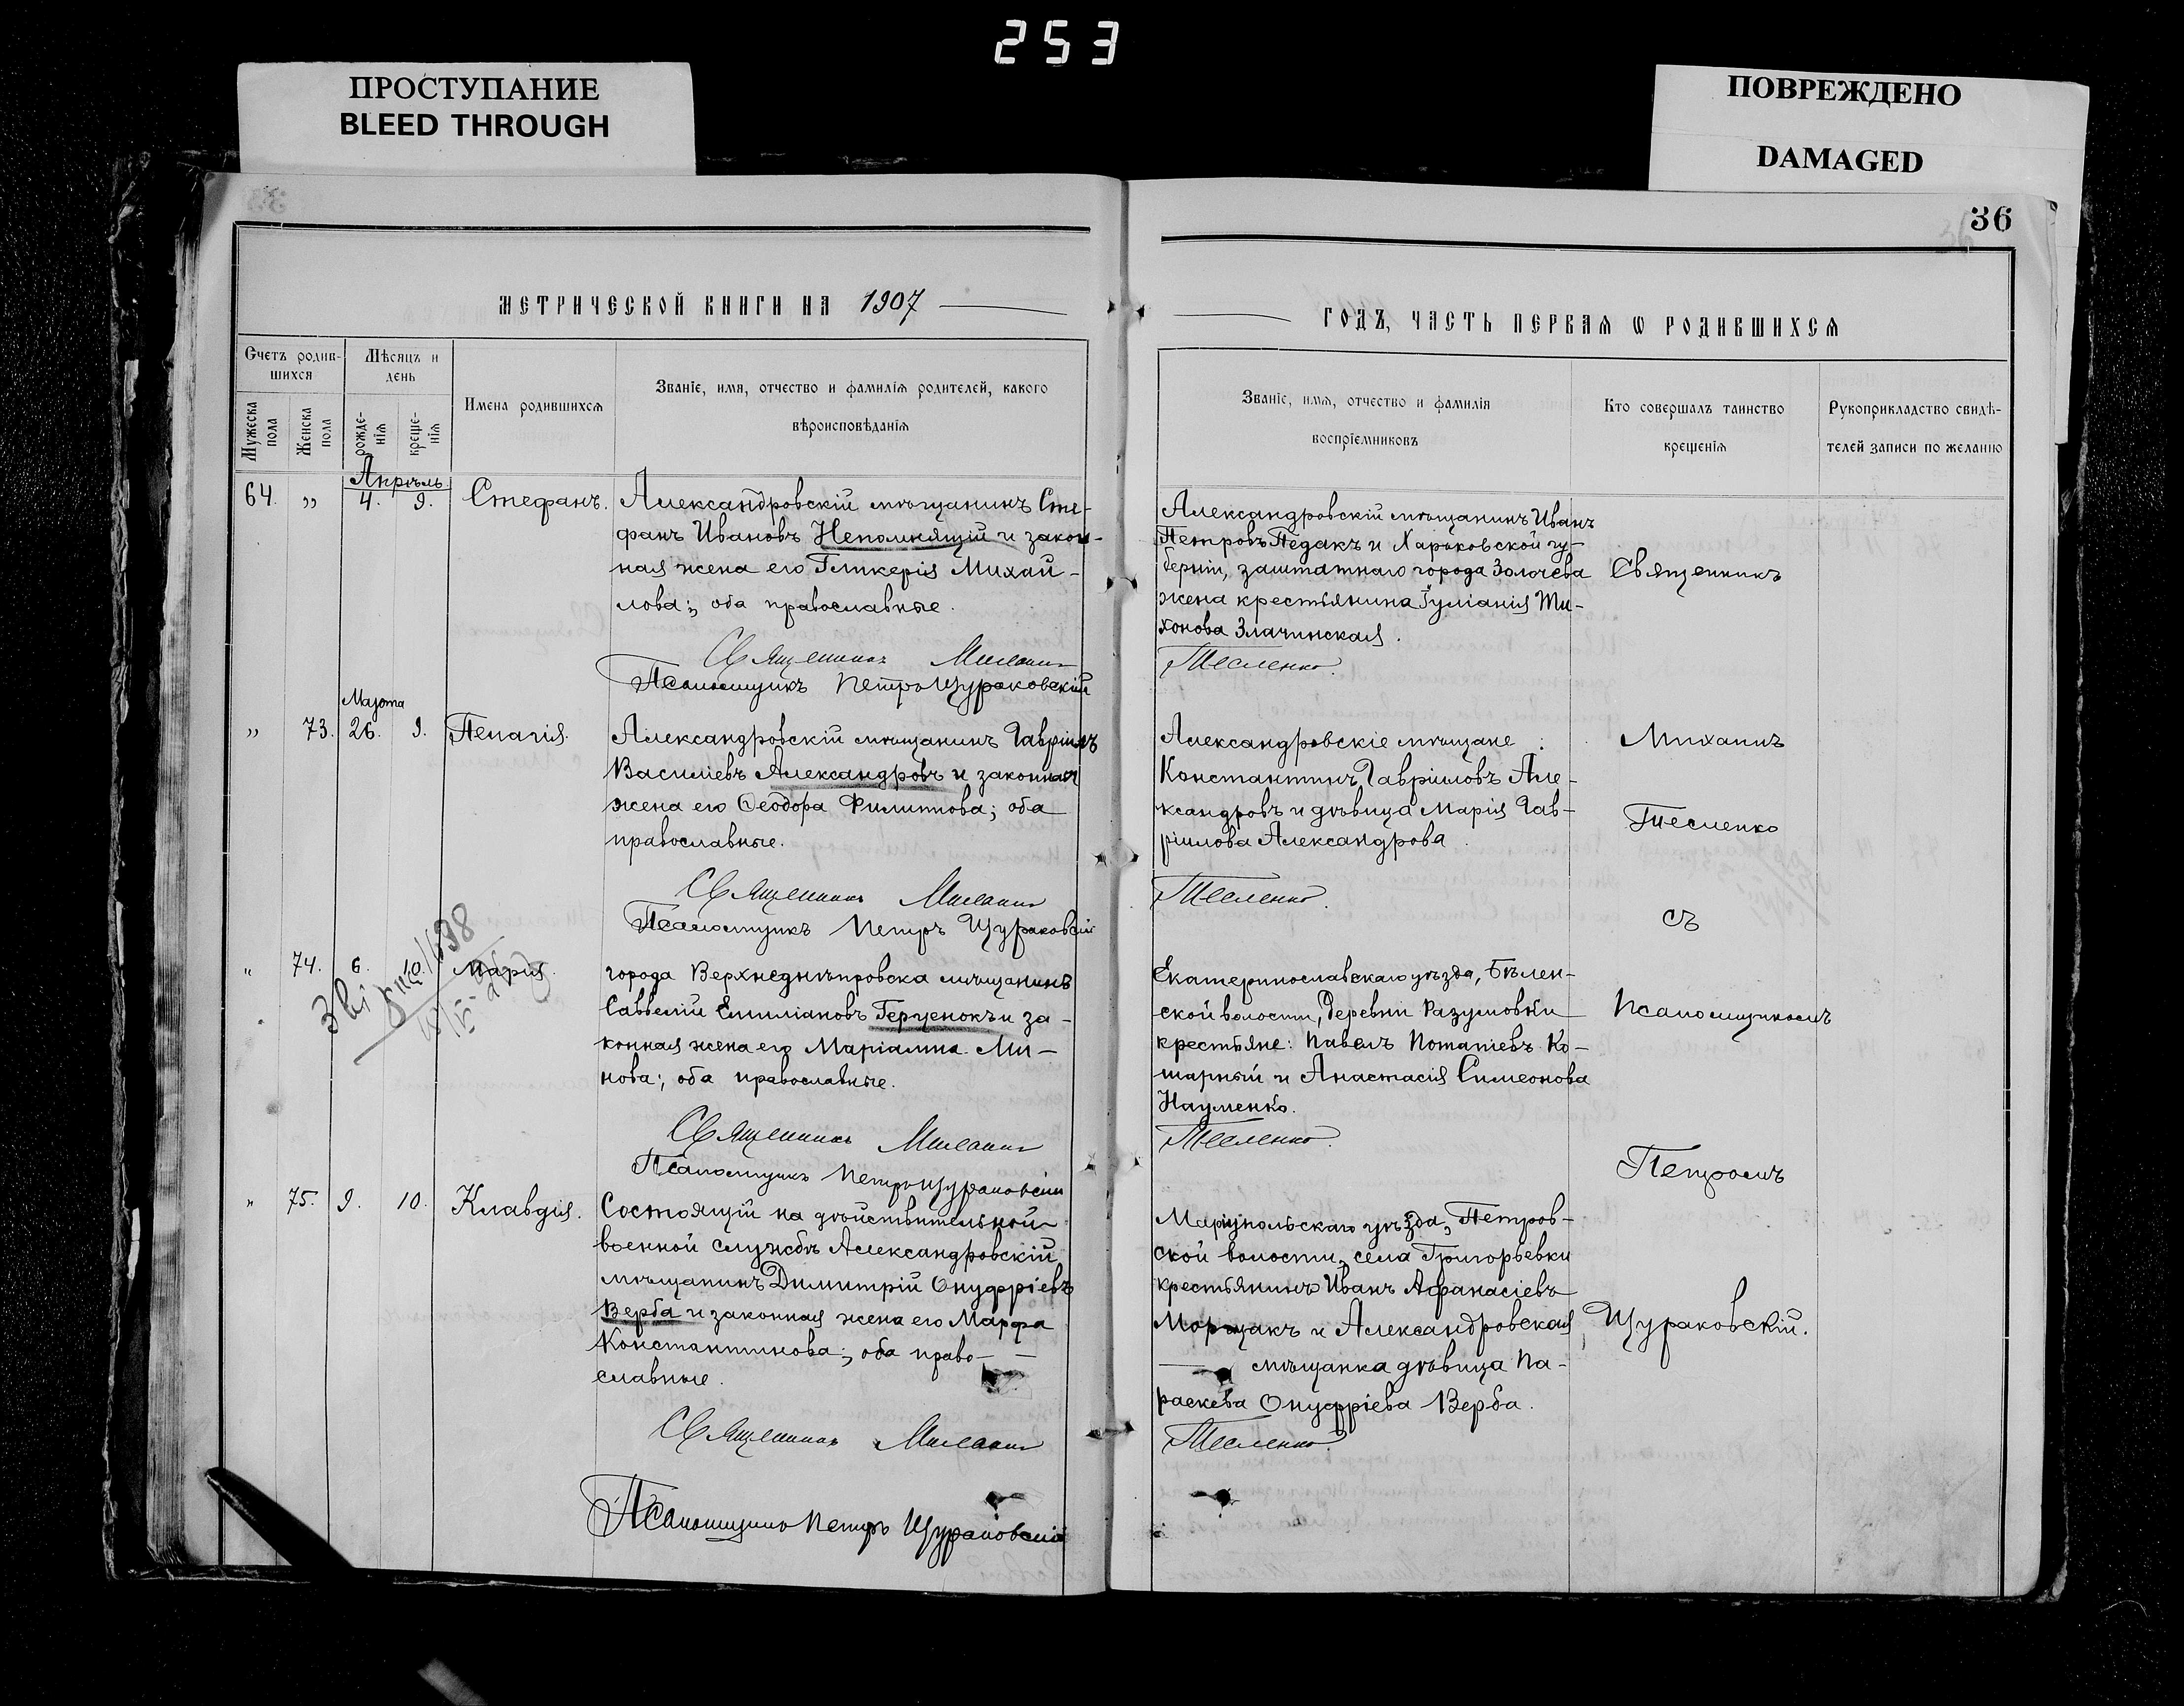 253
ПРОСТУПАНИЕ
BLEED THROUGH
ПОВРЕЖДЕНО
DAMAGED
36
МЕТРИЧЕСКОЙ КНИГИ НА 1907
ГОДЪ, ЧАСТЬ ПЕРВАЯ Ѡ РОДИВШИХСЯ
Счетъ родив-
шихся
Мѣсяцъ и
день
Мужеска
пола
Женска
пола
рожде-
нія
креще-
нія
Имена родившихся
Званіе, имя, отчество и фамилія родителей, какого
вѣроисповѣданія
Званіе, имя, отчество и фамилія
воспріемниковъ
Кто совершалъ таинство
крещенія
Рукоприкладство свидѣ-
телей записи по желанію
Апрѣль
64. „ 4. 9. Стефанъ.
Александровскій мѣщанинъ Сте-
фанъ Ивановъ Непомнящій и закон-
ная жена его Гликерія Михай-
лова; оба православные.
Священникъ Михаилъ
Псаломщикъ Петръ Щураковскій
Александровскій мѣщанинъ Иванъ
Петровъ Педакъ и Харьковской гу-
берніи, заштатнаго города Золочева
жена крестьянина Іуліанія Ти-
хонова Злачинская.
Тесленко.
Священникъ
Марта
„ 73. 26. 9. Пелагія.
Александровскій мѣщанинъ Гавріилъ
Василіевъ Александровъ и законная
жена его Ѳеодора Филиппова; оба
православные.
Священникъ Михаилъ
Псаломщикъ Петръ Щураковскій
Александровскіе мѣщане:
Константинъ Гавріиловъ Але-
ксандровъ и дѣвица Марія Гав-
ріилова Александрова.
Тесленко.
Михаилъ
Тесленко
съ
„ 74. 6. 10. Марія.
города Верхнеднѣпровска мѣщанинъ
Савватій Емиліановъ Герценокъ и за-
конная жена его Маріамна Ми-
нова; оба православные.
Священникъ Михаилъ
Псаломщикъ Петръ Щураковскій
Екатеринославскаго уѣзда, Бѣлен-
ской волости, деревни Разумовки
крестьяне: Павелъ Потапіевъ Ко-
шарный и Анастасія Симеонова
Науменко.
Тесленко.
Псаломщикомъ
Петромъ
„ 75. 9. 10. Клавдія.
Состоящій на дѣйствительной
военной службѣ Александровскій
мѣщанинъ Димитрій Онуфріевъ
Верба и законная жена его Марфа
Константинова; оба право-
славные.
Священникъ Михаилъ
Псаломщикъ Петръ Щураковскій
Маріупольскаго уѣзда, Петров-
ской волости, села Григорьевки
крестьянинъ Иванъ Афанасіевъ
и Александровская
мѣщанка дѣвица Па-
раскева Онуфріева Верба.
Тесленко.
Щураковскій.